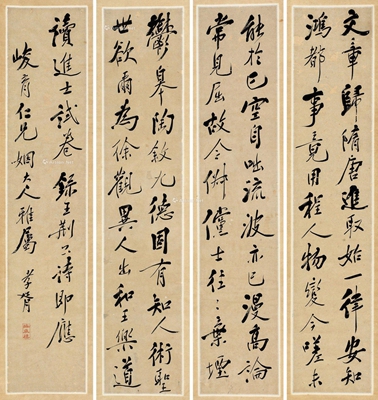 文章歸隋唐進取始一律安知
鴻都事竟用程人物變今嗟未
能於已空自咄流波亦已漫高論
常見屈故令俶儻士往〻棄堙
鬱皋陶敘九德固有知人術聖
世欲爾為徐觀異人出和王樂道
讀進士試卷 錄王荊公詩即應
峻育仁兄姻大人雅屬 孝胥